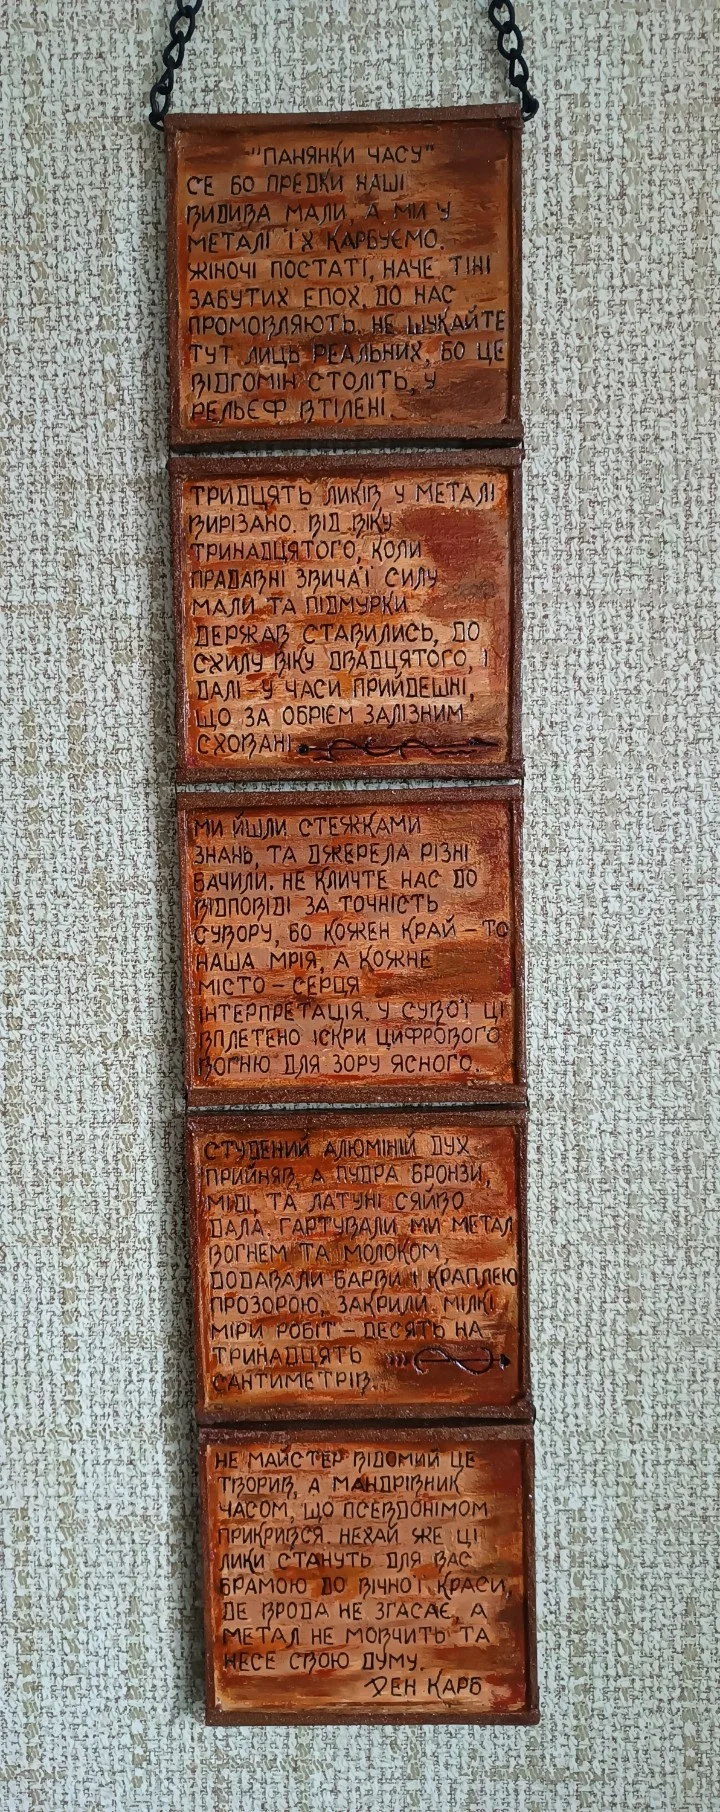 "ПАНЯНКИ ЧАСУ"
СЕ БО ПРЕДКИ НАШІ
ВИДИВА МАЛИ, А МИ У
МЕТАЛІ ЇХ КАРБУЄМО.
ЖІНОЧІ ПОСТАТІ, НАЧЕ ТІНІ
ЗАБУТИХ ЕПОХ, ДО НАС
ПРОМОВЛЯЮТЬ. НЕ ШУКАЙТЕ
ТУТ ЛИЦЬ РЕАЛЬНИХ, БО ЦЕ
ВІДГОМІН СТОЛІТЬ, У
РЕЛЬЄФ ВТІЛЕНІ.
ТРИДЦЯТЬ ЛИКІВ У МЕТАЛІ
ВИРІЗАНО. ВІД ВІКУ
ТРИНАДЦЯТОГО, КОЛИ
ПРАДАВНІ ЗВИЧАЇ СИЛУ
МАЛИ ТА ПІДМУРКИ
ДЕРЖАВ СТАВИЛИСЬ, ДО
СХИЛУ ВІКУ ДВАДЦЯТОГО, І
ДАЛІ - У ЧАСИ ПРИЙДЕШНІ,
ЩО ЗА ОБРІЄМ ЗАЛІЗНИМ
СХОВАНІ.
МИ ЙШЛИ СТЕЖКАМИ
ЗНАНЬ, ТА ДЖЕРЕЛА РІЗНІ
БАЧИЛИ. НЕ КЛИЧТЕ НАС ДО
ВІДПОВІДІ ЗА ТОЧНІСТЬ
СУВОРУ, БО КОЖЕН КРАЙ – ТО
НАША МРІЯ, А КОЖНЕ
МІСТО – СЕРЦЯ
ІНТЕРПРЕТАЦІЯ. У СУВОЇ ЦІ
ВПЛЕТЕНО ІСКРИ ЦИФРОВОГО
ВОГНЮ ДЛЯ ЗОРУ ЯСНОГО.
СТУДЕНИЙ АЛЮМІНІЙ ДУХ
ПРИЙНЯВ, А ПУДРА БРОНЗИ,
МІДІ, ТА ЛАТУНІ СЯЙВО
ДАЛА. ГАРТУВАЛИ МИ МЕТАЛ
ВОГНЕМ ТА МОЛОКОМ,
ДОДАВАЛИ БАРВИ І КРАПЛЕЮ
ПРОЗОРОЮ, ЗАКРИЛИ. МІЛКІ
МІРИ РОБІТ – ДЕСЯТЬ НА
ТРИНАДЦЯТЬ
САНТИМЕТРІВ.
НЕ МАЙСТЕР ВІДОМИЙ ЦЕ
ТВОРИВ, А МАНДРІВНИК
ЧАСОМ, ЩО ПСЕВДОНІМОМ
ПРИКРИВСЯ. НЕХАЙ ЖЕ ЦІ
ЛИКИ СТАНУТЬ ДЛЯ ВАС
БРАМОЮ ДО ВІЧНОЇ КРАСИ,
ДЕ ВРОДА НЕ ЗГАСАЄ, А
МЕТАЛ НЕ МОВЧИТЬ ТА
НЕСЕ СВОЮ ДУМУ.
ДЕН КАРБ